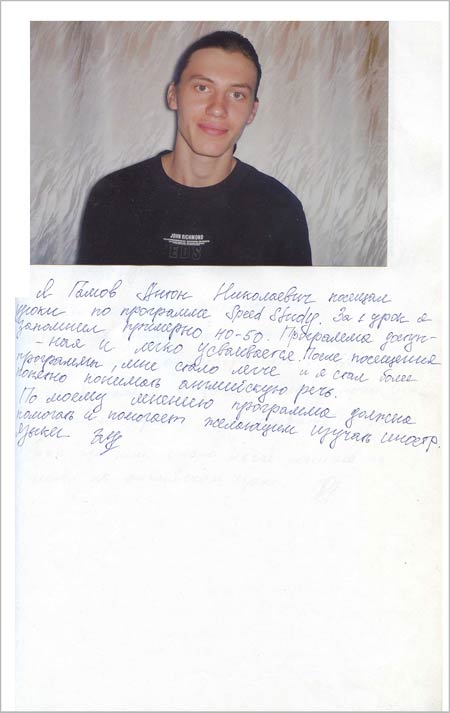 JOHN RICHMOND
EDS
Я Гамов Антон Николаевич посещал
уроки по программе Speed Study. За 1 урок я
запоминал примерно 40-50. Программа доступ-
-ная и легко усваивается. После посещения
программы, мне стало легче и я стал более
понятно понимать английскую речь.
По моему мнению программа должна
помогать и помогает желающим изучать иностр.
языки